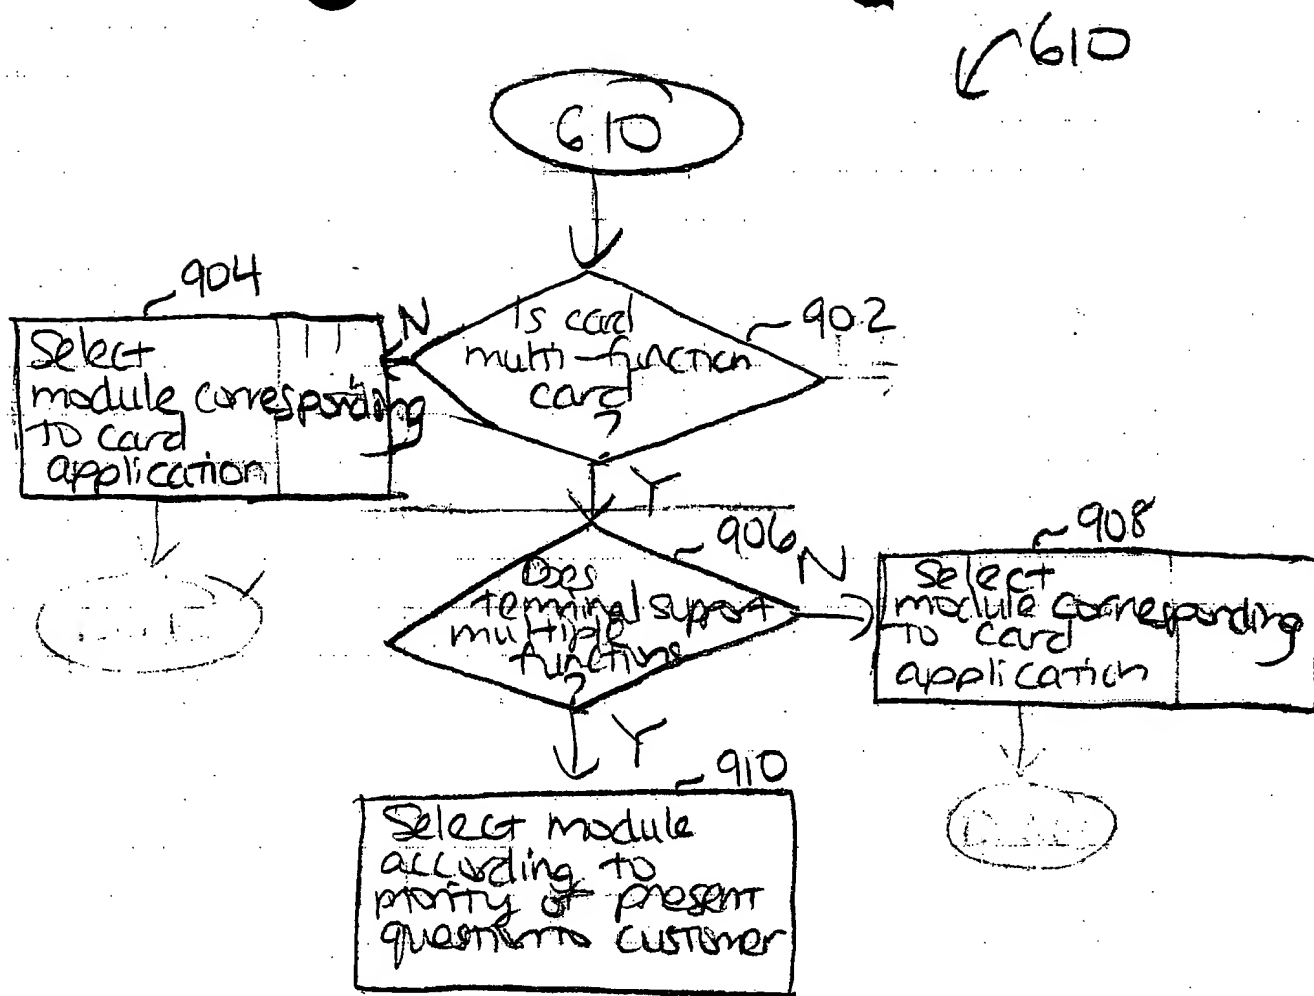 610
610
904
Select
module corresponding
TO card
application
N
Is card
multi-function
card
?
902
Y
906
Does
terminal support
multiple
functions
?
N
908
Select
module corresponding
TO card
application
Y
910
Select module
according to
priority or present
question to customer